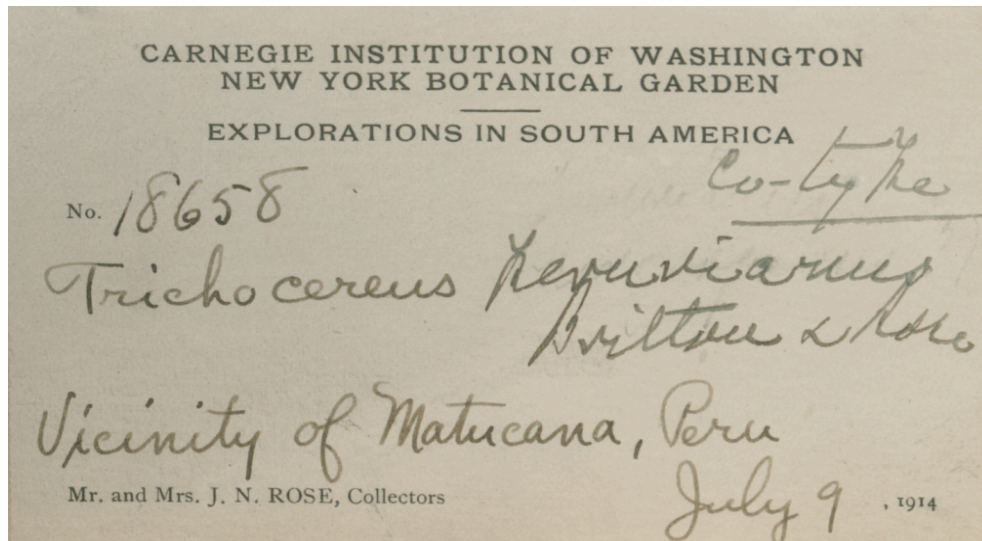 CARNEGIE INSTITUTION OF WASHINGTON
NEW YORK BOTANICAL GARDEN
EXPLORATIONS IN SOUTH AMERICA
Co-type
No. 18658
Trichocereus peruvianus
Britton & Rose
Vicinity of Matucana, Peru
Mr. and Mrs. J. N. ROSE, Collectors
July 9, 1914